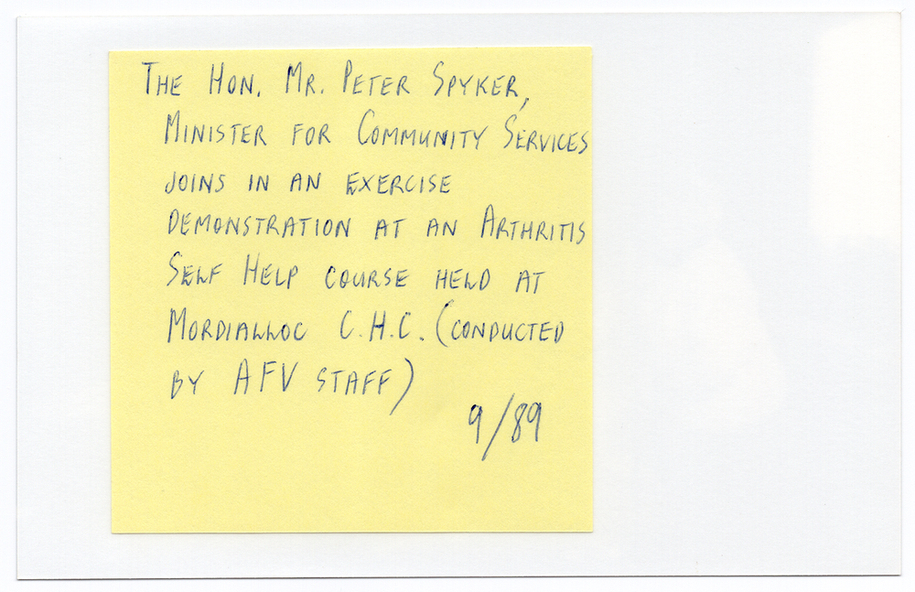 THE HON. MR. PETER SPYKER,
MINISTER FOR COMMUNITY SERVICES
JOINS IN AN EXERCISE
DEMONSTRATION AT AN ARTHRITIS
SELF HELP COURSE HELD AT
MORDIALLOC C.H.C. (CONDUCTED
BY AFV STAFF)
9/89